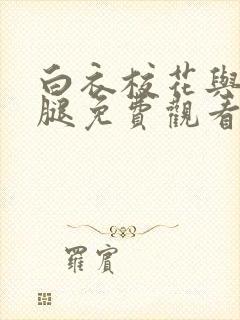 白衣校花與
腿免費觀看
羅賓